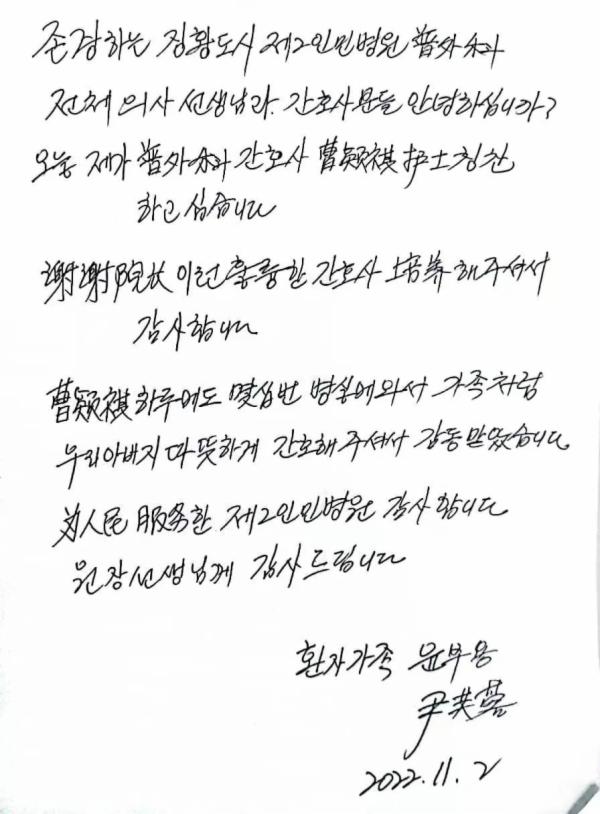 존경하는 징황도시 제2인민병원 普外科
전체 의사 선생님과 간호사분들 안녕하십니까?
오늘 제가 普外科 간호사 曹颖祺 护士 칭찬
하고 싶습니다
谢谢院长 이런 훌륭한 간호사 培养해주셔서
감사합니다
曹颖祺 하루에도 몇십번 병실에와서 가족처럼
우리아버지 따뜻하게 간호해 주셔서 감동 받았습니다
为人民服务한 제2인민병원 감사합니다
원장선생님께 감사드립니다
환자가족 윤부용
尹芙蓉
2022.11.2